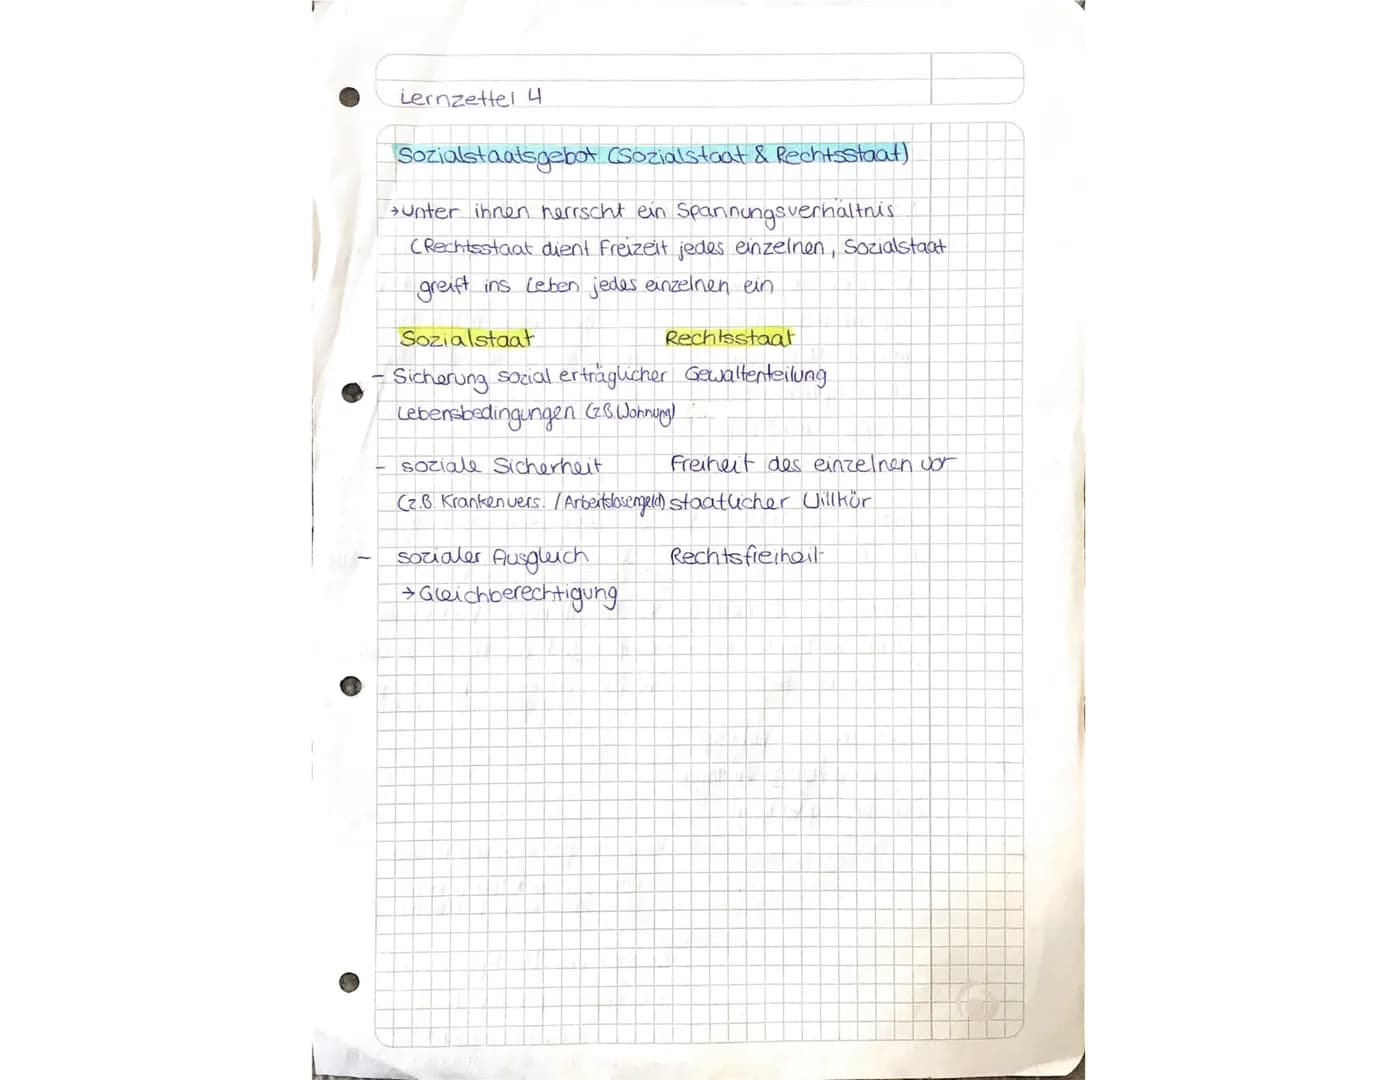 Lernzettel 4
Sozialstaatsgebot (Sozialstaat & Rechtsstaat)
→unter ihnen herrscht ein Spannungsverhältnis
(Rechtsstaat dient Freizeit jedes einzelnen, Sozialstaat
greift ins Leben jedes einzelnen ein
Sozialstaat Rechtsstaat
- Sicherung sozial erträglicher Gewaltenteilung
Lebensbedingungen (zB Wohnung)
- soziale Sicherheit Freiheit des einzelnen vor
(z.B. Krankenvers. / Arbeitslosengeld) staatlicher Willkür
- sozialer Ausgleich Rechtsfreiheit
→ Gleichberechtigung